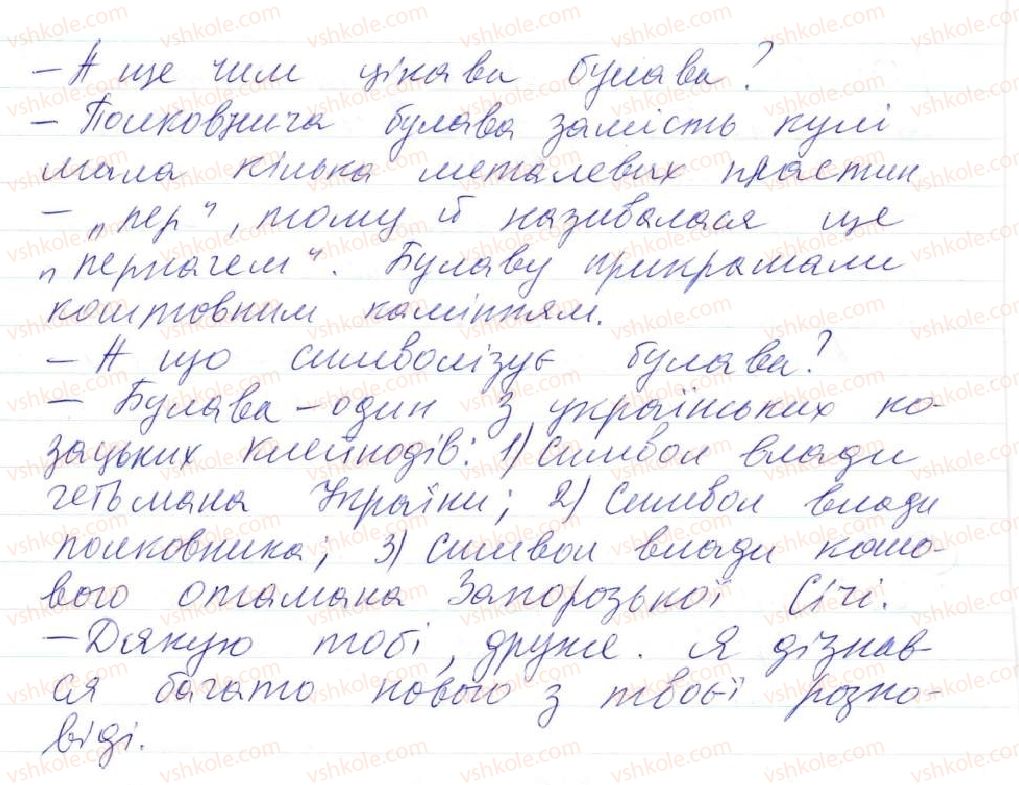 – А ще чим цікава булава?
– Полковнича булава замість кулі
мала кілька металевих пластин
– „пер“, тому й називалася ще
„перначем“. Булаву прикрашали
коштовним камінням.
– А що символізує булава?
– Булава – один з українських ко-
зацьких клейнодів: 1) символ влади
гетьмана України; 2) символ влади
полковника; 3) символ влади кошо-
вого отамана Запорозької Січі.
– Дякую тобі, друже. Я дізнав-
ся багато нового з твоєї розпо-
віді.